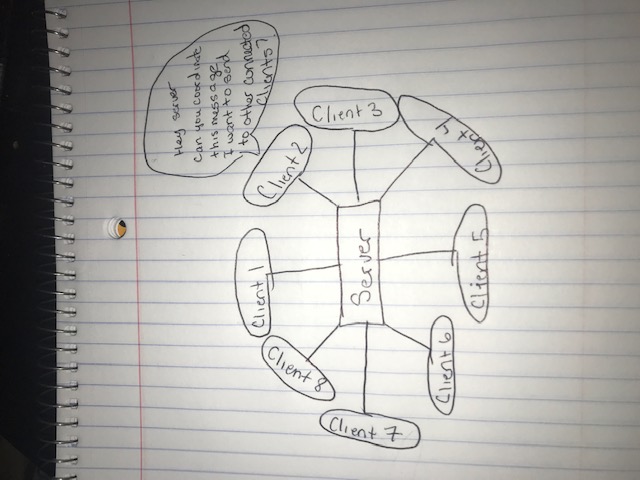 Hey server
can you coordinate
this message
I want to send
to other connected
clients?
Client 1
Client 2
Client 8
Client 3
Server
Client 7
Client 6
Client 4
Client 5